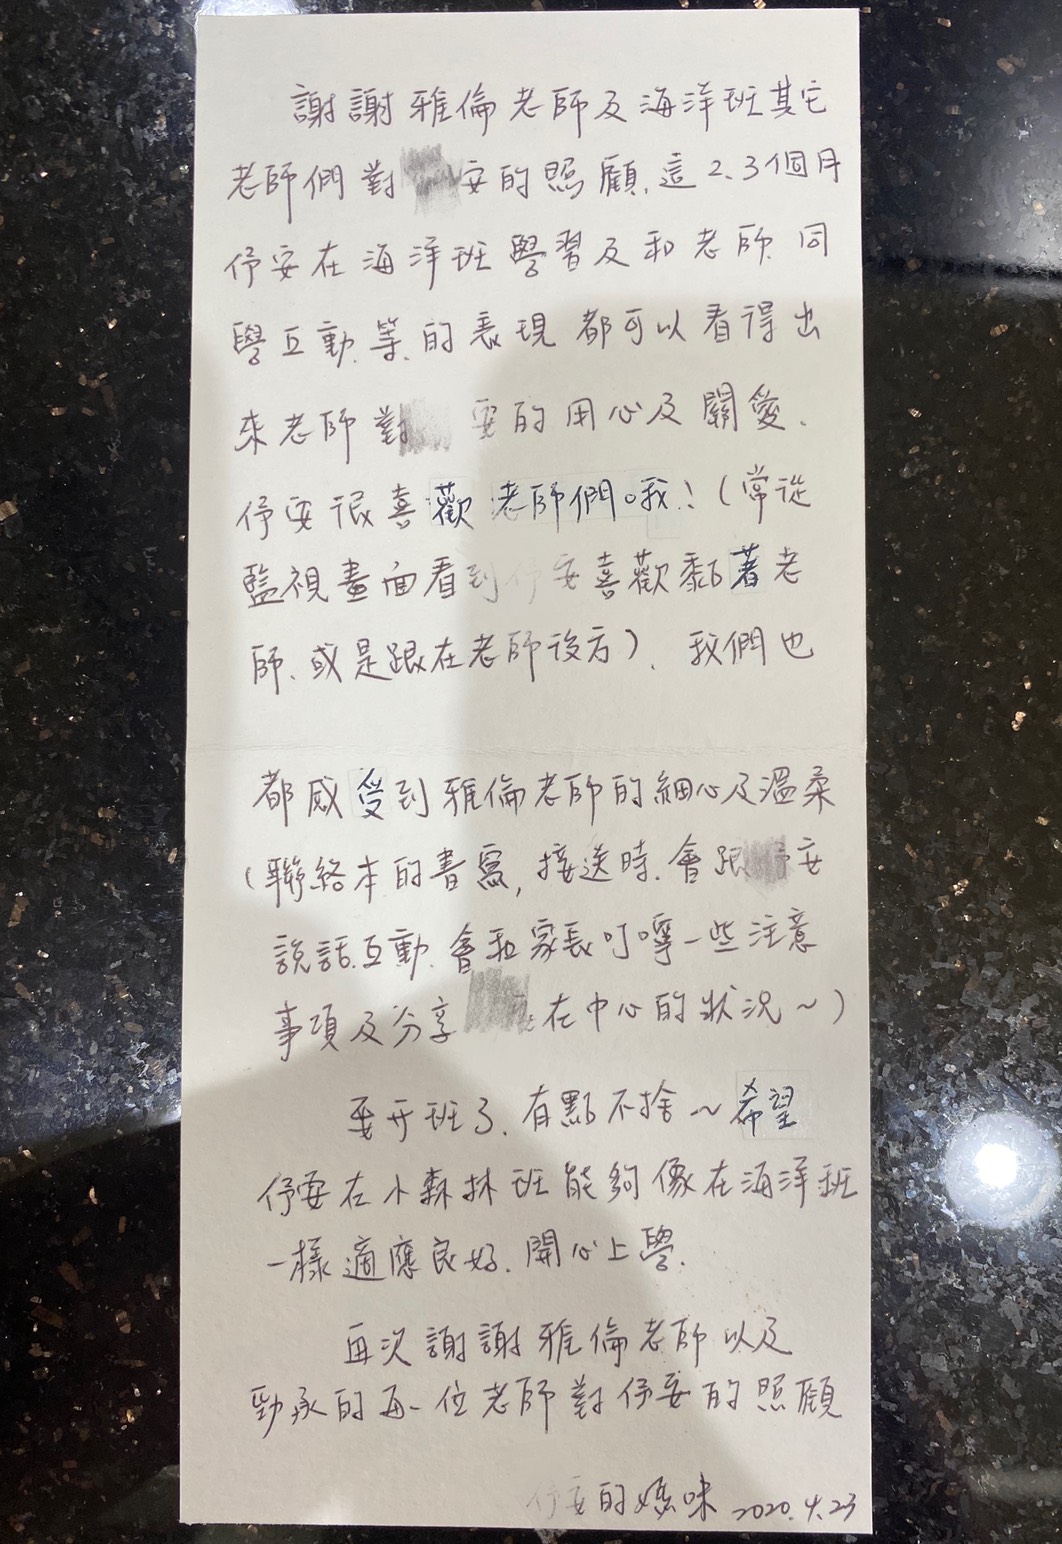 謝謝雅倫老師及海洋班其它
老師們對 安的照顧、這2、3個月
伃安在海洋班學習及和老師、同
學互動、等、的表現都可以看得出
來老師對 安的用心及關愛、
伃安很喜歡老師們哦!(常從
監視畫面看到伃安喜歡黏著老
師、或是跟在老師後方)、我們也
都感受到雅倫老師的細心及溫柔
(聯絡本的書寫,接送時、會跟 安
說話互動、會和家長叮嚀一些注意
事項及分享 在中心的狀況~)
要升班了、有點不捨~希望
伃安在小森林班能夠像在海洋班
一樣適應良好、開心上學、
再次謝謝雅倫老師以及
勁承的每一位老師對伃安的照顧
伃安的媽咪 2020.4.23